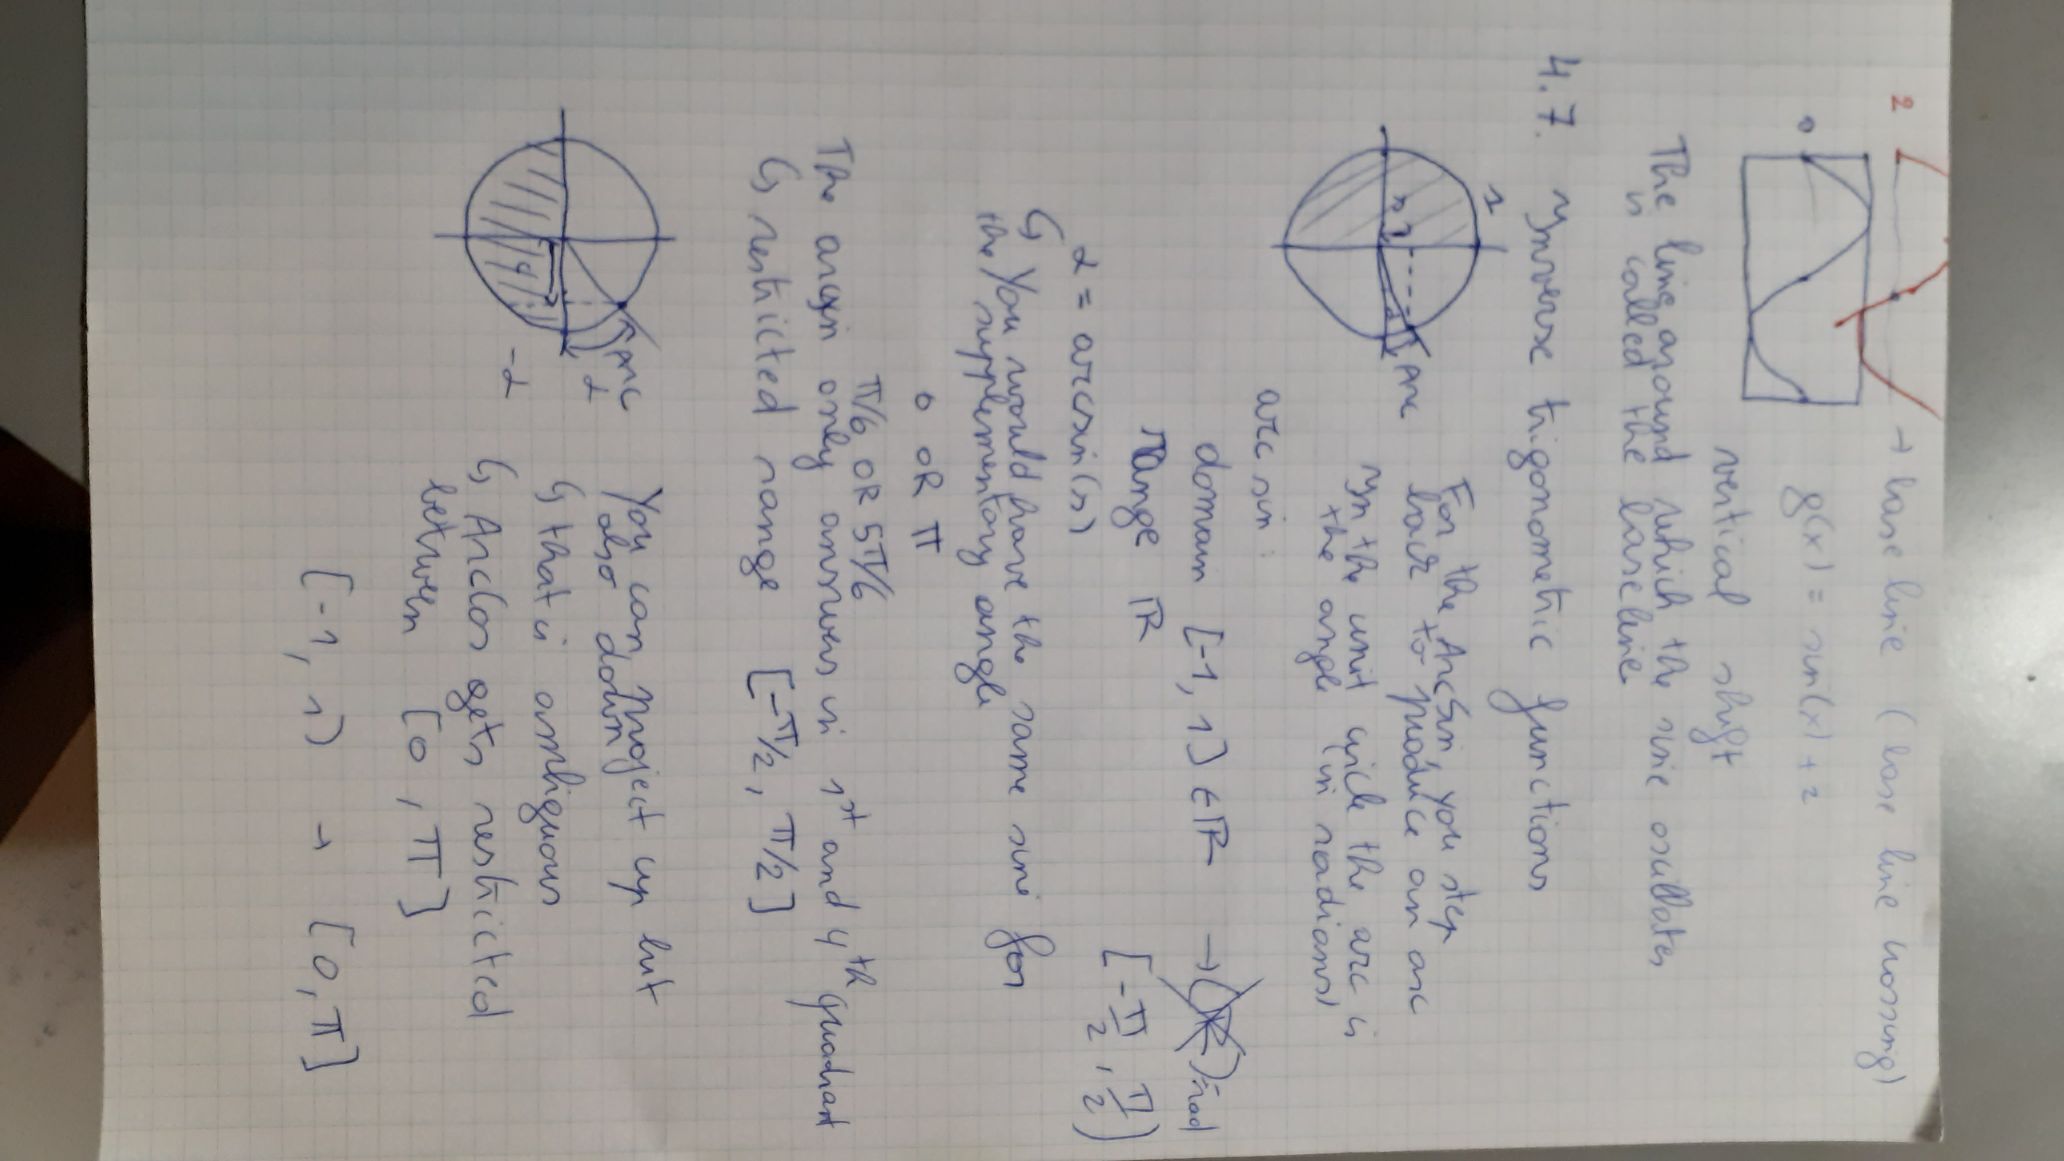 2 → base line (base line crossing)
0 g(x) = sin(x) + 2
vertical shift
The line around which the sine oscillates
is called the baseline
4.7. Inverse trigonometric functions
1
For the ArcSin, you step
Arc back to produce an arc
In the unit circle the arc is
the angle (in radians)
arc sin:
domain [-1, 1] ∈ ℝ → (ℝ) = rad
range ℝ [-π/2, π/2]
α = arcsin(s)
↳ You would have the same sine for
the supplementary angle
0 OR π
π/6 OR 5π/6
The arcsin only answers in 1st and 4th quadrant
↳ restricted range [-π/2, π/2]
Arc You can project up but
α also down
↳ that is ambiguous
-α
↳ ArcCos gets restricted
between [0, π]
[-1, 1] → [0, π]